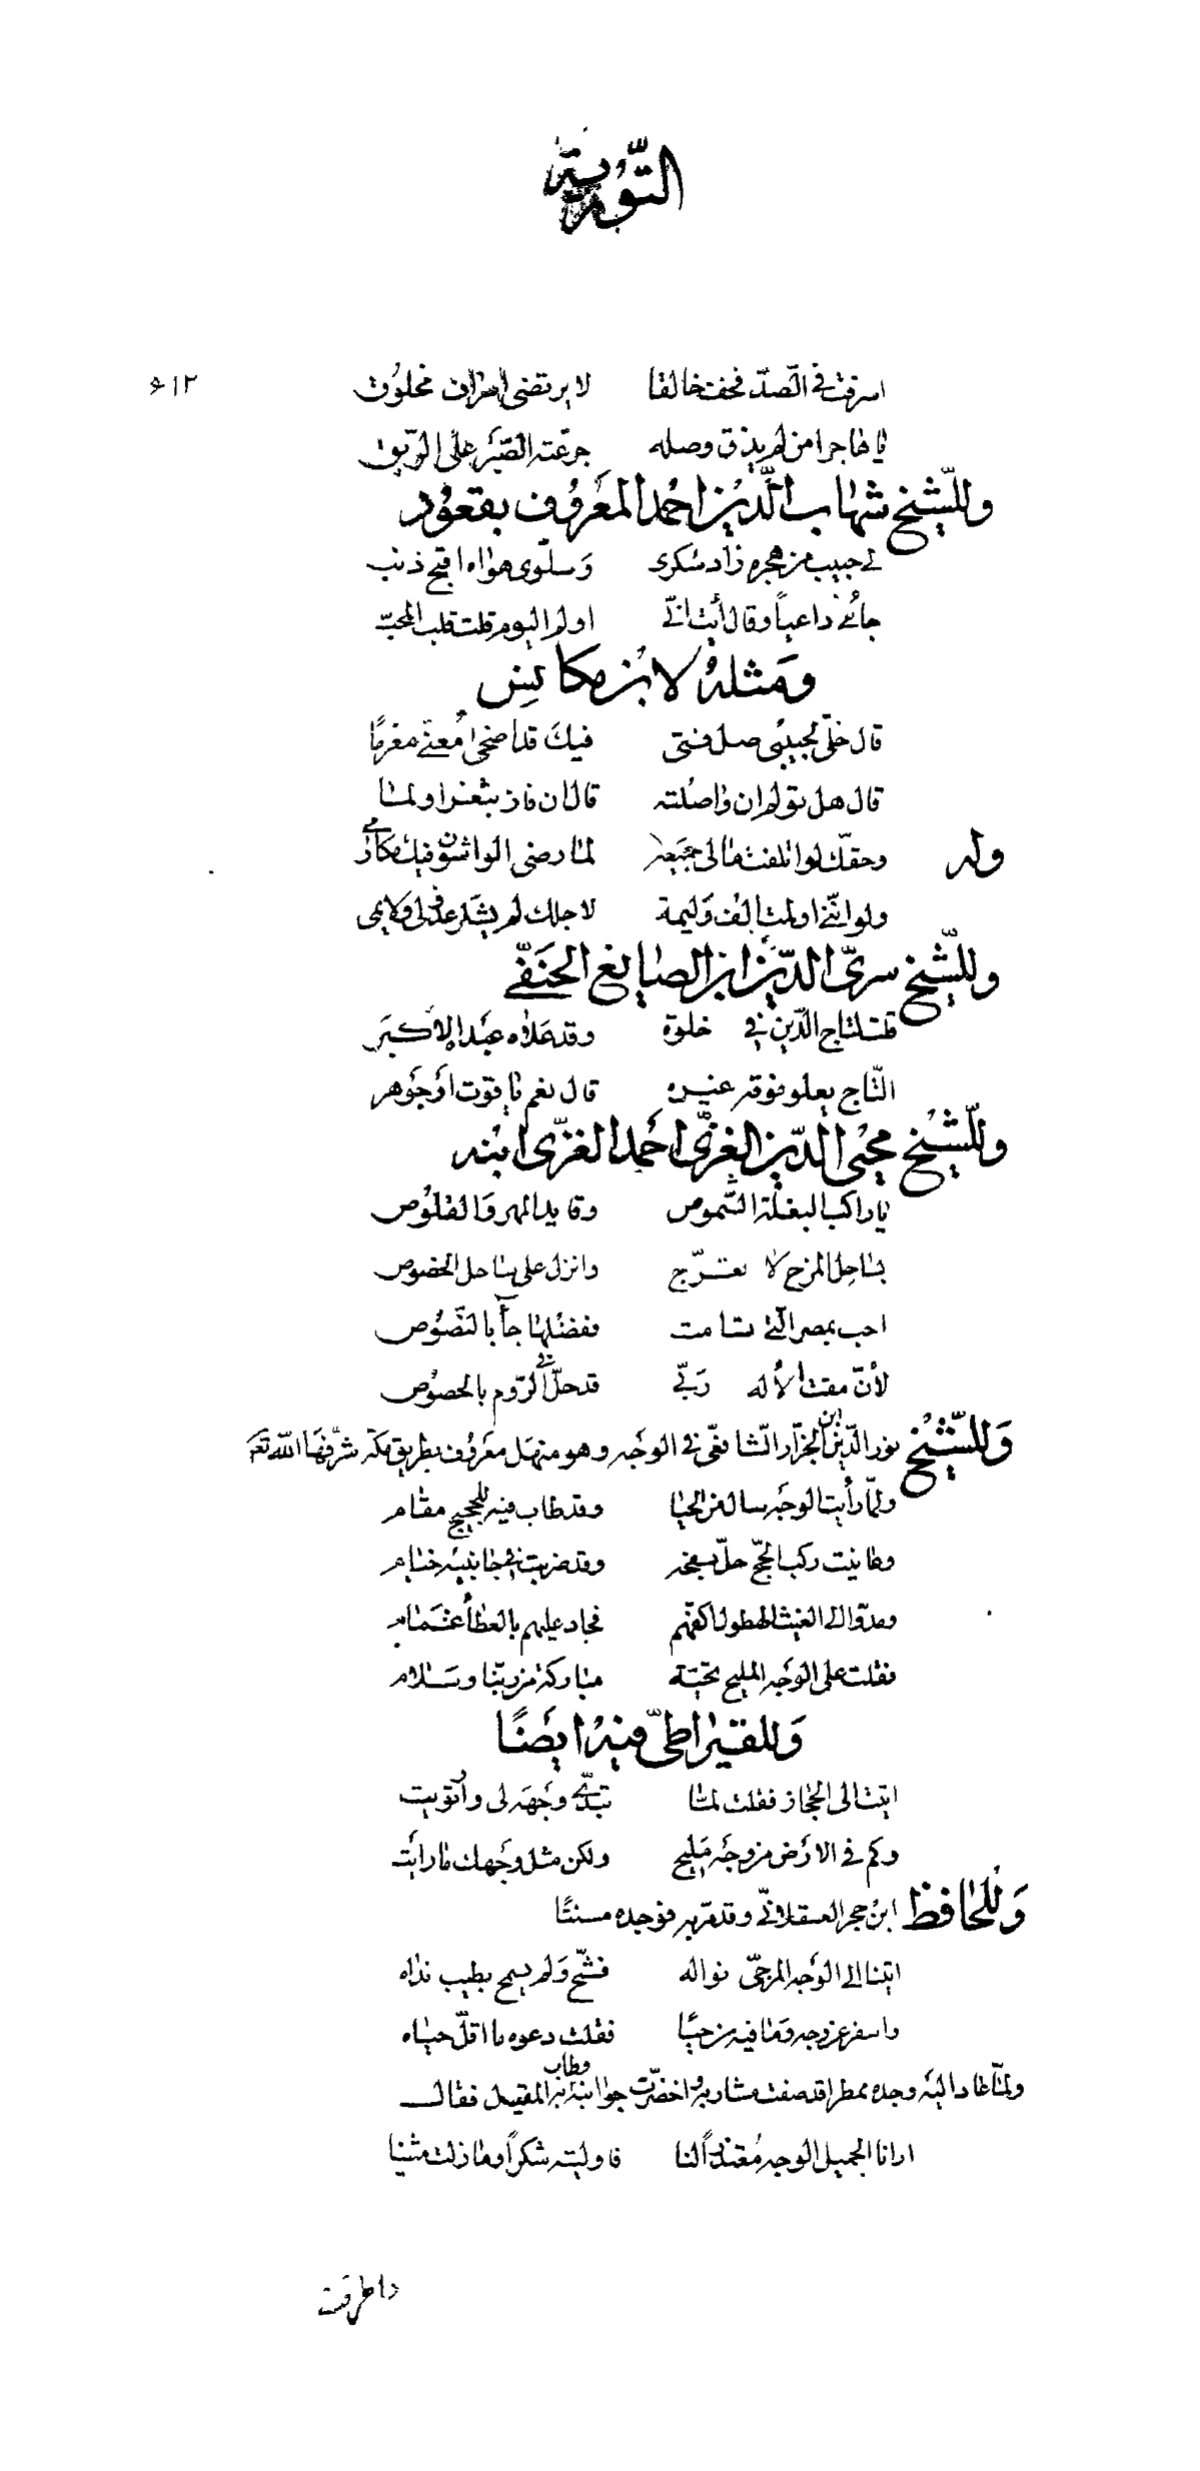 التّورية
اسرفت في الصّدّ فخف خالقا لا يرتضي اسراف مخلوق ٢١٢
يا هاجرا من لم يذق وصله جرعته الصّبر على الرّيق
وللشّيخ شهاب الدّين احمد المعروف بقعود
لي حبيب من هجره زاد سكري وسلوى هواه اقبح ذنب
جائني داعياً وقال أنت انّي اولم اليوم قلت قلب المحبّ
ومثله لابن مكانس
قال خلّي لحبيبي صل فتى فيك قد اضحى معنّى مغرمًا
قال هل تولم ان واصلته قال ان فاز بثغر اولما
وله وحقّك لو اتلفت مالي جميعه لما رضي الواشون فيك مكارمي
ولو انّني اولمت الف وليمة لاجلك لم يشكر عذولي ولايمي
وللشّيخ سريّ الدّين ابن الصايغ الحنفي
قلت لتاج الدّين في خلوة وقد علاه عبد الاكبر
التّاج يعلو فوقه غيره قال نعم ياقوت او جوهر
وللشّيخ محيي الدّين الغزّي احمد الغزّي ابنه
يا راكب البغلة الشّموص وقايد المهر والقلوص
بساحل المزح لا تعرّج وانزل على ساحل الخصوص
احب بمصر الّتي تسامت ففضلها جآ بالنّصوص
لأنّ مقت الأله ربّي قد حلّ في الرّوم بالخصوص
وللشّيخ نور الدّين ابن الجزّار الشّافعي في الوجه وهو منهل معروف بطريق مكّة شرّفها اللّه تعَ
ولمّا رأيت الوجه سال من الحيا وقد طاب فيه للحجيج مقام
وعاينت ركب الحجّ حلّ بسفحه وقد ضربت في جانبيه خيام
ومدّوا الى الغيث الهطول اكفّهم فجاد عليهم بالعطآ غمام
فقلت على الوجه المليح تحيّة مباركة من ربّنا وسلام
وللقيراطيّ فيه ايضًا
اتيت الى الحجاز فقلت لمّا تبدّى وجهه لي وارتويت
وكم في الارض من وجه مليح ولكن مثل وجهك ما رأيت
وللحافظ ابن حجر العسقلاني وقد مرّ به فوجده مسنتًا
اتينا الى الوجه المرجّى نواله فشحّ ولم يسمح بطيب نداه
واسفر عن وجه وما فيه من حيًا فقلت دعوه ما اقلّ حياه
ولمّا عاد اليه وجده ممطرا قد صفت مشاربه واخضرّت جوانبه وطاب به المقيل فقال
اتانا الجميل الوجه مُعتذراً لنا فاوليته شكراً وما زلت مثنيا